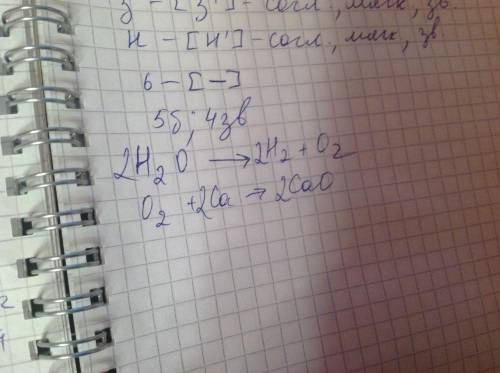 З - [З'] - согл., мягк, зв
Н - [Н'] - согл., мягк, зв
ь - [-]
5б; 4зв
2H₂O → 2H₂ + O₂
O₂ + 2Ca → 2CaO